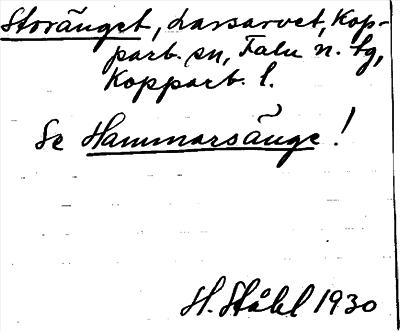 Storänget, Larsarvet, Kop-
parb. sn, Falu n. tg,
Kopparb. l.
Se Hammarsänge!
H. Ståhl 1930